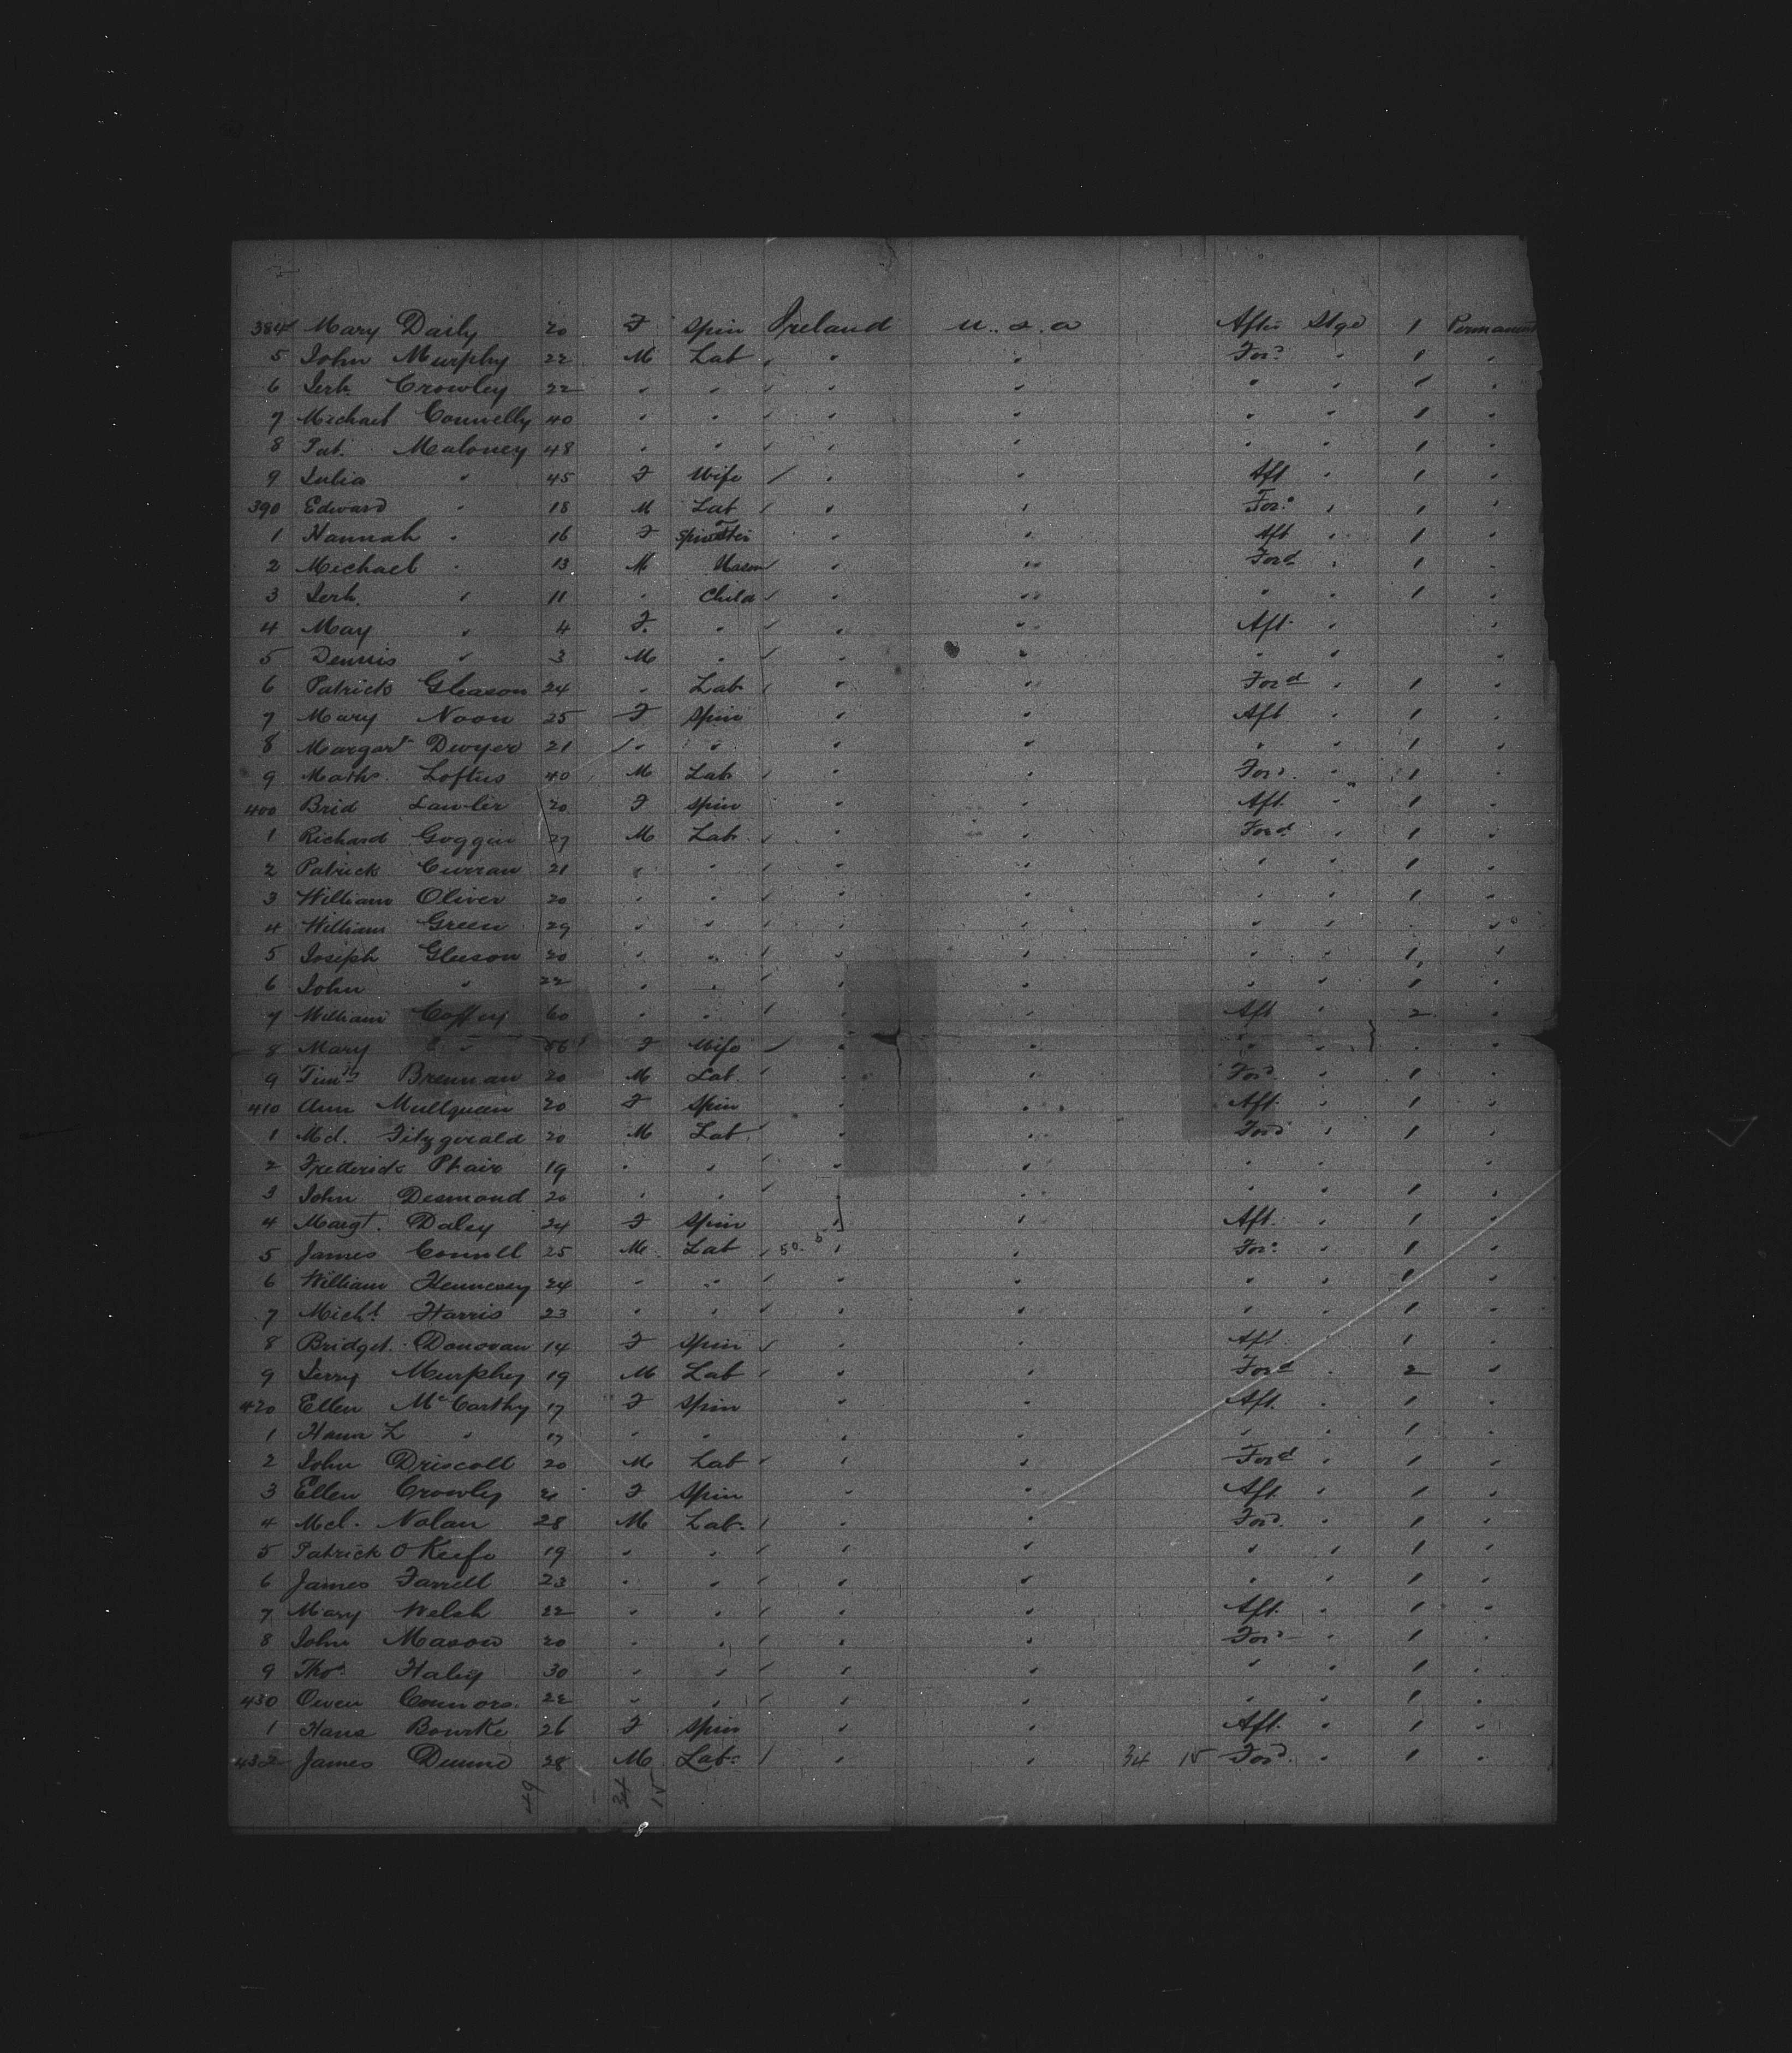 384 Mary Daily 20 F Spin Ireland U.S.A After Stge 1 Permanent
5 John Murphy 22 M Lab " " Ford " 1 "
6 Jerh Crowley 22 " " " " " " 1 "
7 Michael Connelly 40 " " " " " " 1 "
8 Pat. Maloney 48 " " " " " " 1 "
9 Julia " 45 F Wife " " Aft " 1 "
390 Edward " 18 M Lab " " For. " 1 "
1 Hannah " 16 F " " Aft " 1 "
2 Michael " 13 M Mason " " Ford " 1 "
3 Jerh. " 11 " Child " " " " 1 "
4 May " 4 F. " " " Aft. " "
5 Dennis " 3 M " " " " " "
6 Patrick Gleason 24 " Lab " " Ford " 1 "
7 Mary Noon 25 F Spin " " Aft " 1 "
8 Margart Dwyer 21 " " " " " " 1 "
9 Loftus 40 M Lab " " Ford. " 1 "
400 Brid Lawler 20 F Spin " " Aft. " 1 "
1 Richard Goggin 27 M Lab " " Ford " 1 "
2 Patrick Curran 21 " " " " " " 1 "
3 William Oliver 20 " " " " " " 1 "
4 William Green 29 " " " " " " "
5 Joseph Gleeson 20 " " " " " " 1 "
6 John " 22 " " " " " " 1 "
7 William Coffey 60 " " " " Aft " 2 "
8 Mary " 56 F Wife " " " " "
9 Timth Brennan 20 M Lab. " " Ford " 1 "
410 Ann Mullquean 20 F Spin " " Aft. " 1 "
1 Md. Fitzgerald 20 M Lab " " Ford " 1 "
2 Frederick Phair 19 " " " " " " "
3 John Desmond 20 " " " " " " 1 "
4 Margt. Daley 24 F Spin " " Aft. " 1 "
5 James Connell 25 M Lab 50. " " For. " 1 "
6 William Hennessy 24 " " " " " " 1 "
7 Michl Harris 23 " " " " " " 1 "
8 Bridget Donovan 14 F Spin " " Aft. " 1 "
9 Jerry Murphy 19 M Lab " " Ford " 2 "
420 Ellen McCarthy 17 F Spin " " Aft. "
1 Hana L " 17 " " " " " " 1 "
2 John Driscoll 20 M Lab " " Ford " 1 "
3 Ellen Crowley 21 F Spin " " Aft. " 1 "
4 Mcl. Nolan 28 M Lab. " " Ford. " 1 "
5 Patrick O Keefe 19 " " " " " " 1 "
6 James Farrell 23 " " " " " " 1 "
7 Mary Welsh 22 " " " " Aft. " 1 "
8 John Mason 20 " " " " Ford " 1 "
9 Thos Haley 30 " " " " " " 1 "
430 Owen Connors. 22 " " " " " " 1 "
1 Hana Bourke 26 F Spin " " Aft. " 1 "
432 James Dunne 28 M Lab. " " 34 15 Ford. " 1 "
49 34 15
8